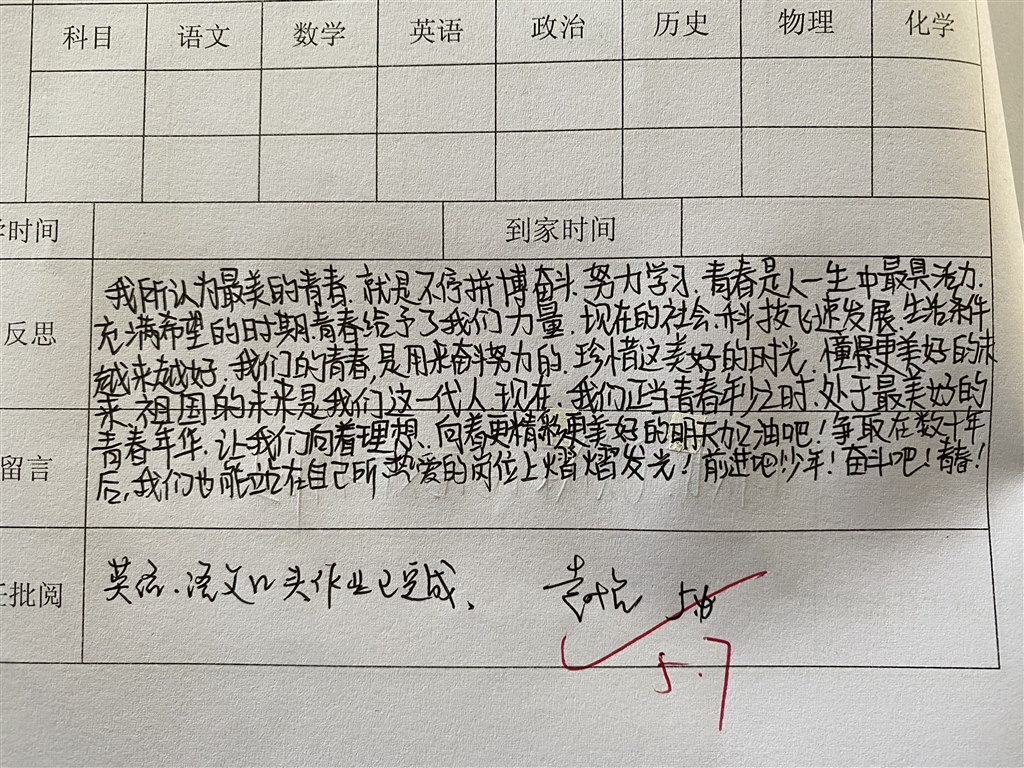 科目 语文 数学 英语 政治 历史 物理 化学
学时间 到家时间
反思
我所认为最美的青春.就是不停拼搏奋斗.努力学习.青春是人一生中最具活力.
充满希望的时期.青春给予了我们力量.现在的社会.科技飞速发展.生活条件
越来越好.我们的青春,是用来奋斗努力的.珍惜这美好的时光,懂得更美好的未
来.祖国的未来是我们这一代人.现在.我们正当青春年少之时.处于最美好的
青春年华.让我们向着理想、向着更精彩更美好的明天加油吧!争取在数十年
后,我们也能站在自己所热爱的岗位上熠熠发光!前进吧!少年!奋斗吧!青春!
留言
任批阅
英语.语文口头作业已完成、
5.7